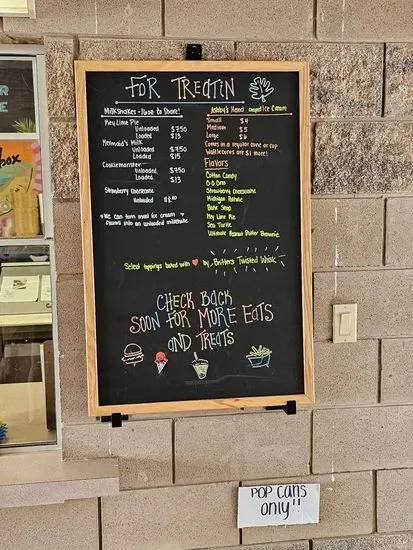 FOR TREATIN
Milkshakes - to Share!
Key Lime Pie
Unloaded $7.50
Loaded $13
Mermaid's Milk
Unloaded $7.50
Loaded $15
Cookiemonster
Unloaded $7.50
Loaded $13
Strawberry Cheesecake
Unloaded
*We can turn most ice cream
flavors into an unloaded milkshake
Ashby's Hand Scooped Ice Cream
Small $4
Medium $5
Large $6
Comes in a regular cone or cup
Waffle cones are $1 more!
Flavors
Cotton Candy
Strawberry Cheesecake
Michigan Pothole
Key Lime Pie
Sea Turtle
Ultimate Peanut Butter Brownie
Select toppings baked with ♥ by Britters Twisted Whisk
CHECK BACK
SOON FOR MORE EATS
AND TREATS
POP cans
only!!